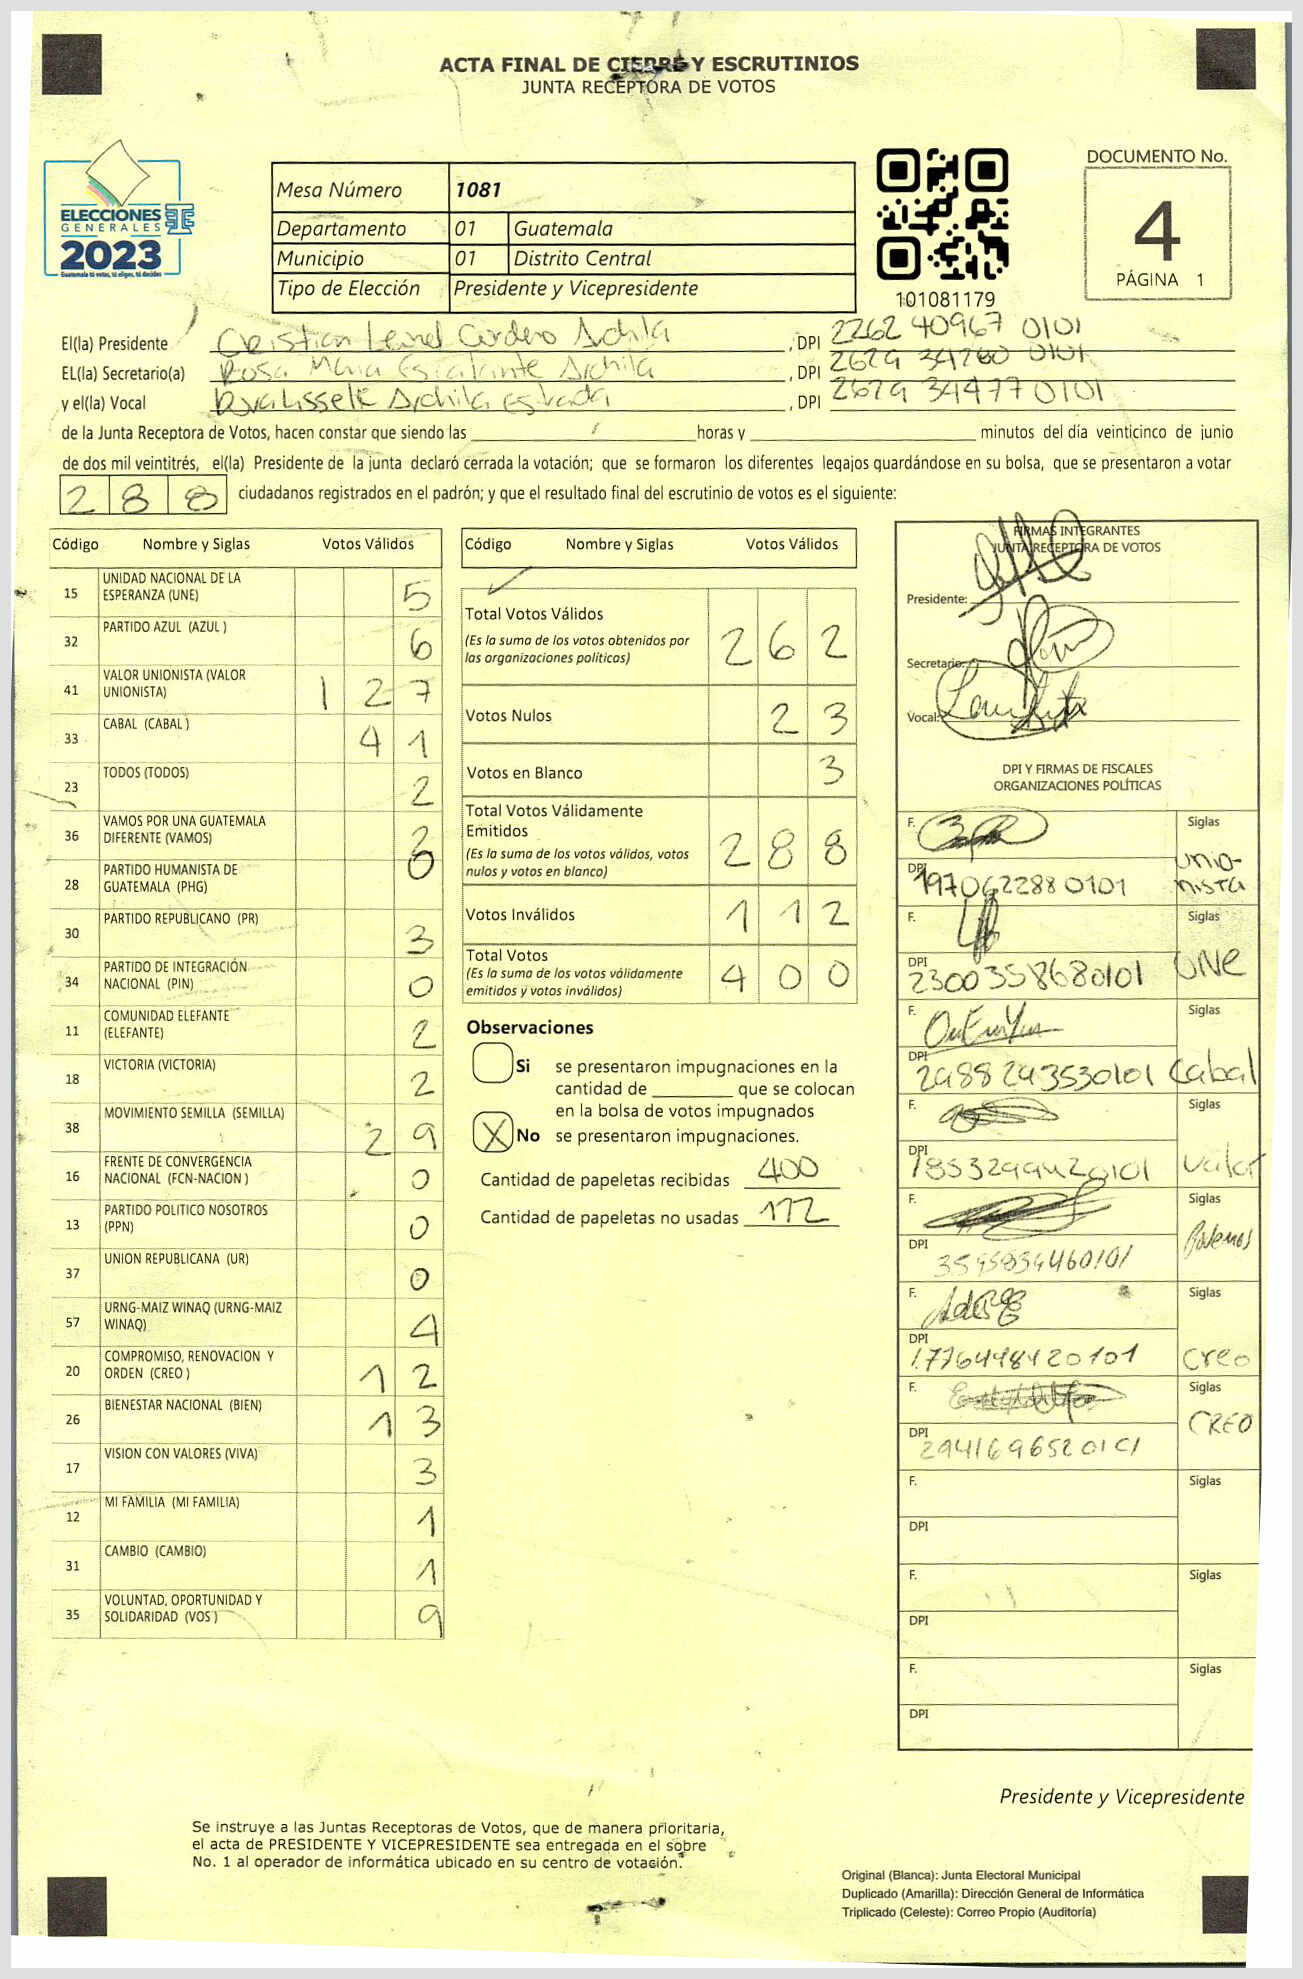 ACTA FINAL DE CIERRE Y ESCRUTINIOS
JUNTA RECEPTORA DE VOTOS
ELECCIONES
GENERALES
2023
Guatemala tú votas, tú eliges, tú decides
Mesa Número 1081
Departamento 01 Guatemala
Municipio 01 Distrito Central
Tipo de Elección Presidente y Vicepresidente
101081179
DOCUMENTO No.
4
PÁGINA 1
El(la) Presidente Cristian Leonel Cordero Archila, DPI 2262 40967 0101
EL(la) Secretario(a) Rosa Maria Escalante Archila, DPI 2629 34260 0101
y el(la) Vocal Archila Estrada, DPI 2629 34477 0101
de la Junta Receptora de Votos, hacen constar que siendo las horas y minutos del día veinticinco de junio
de dos mil veintitrés, el(la) Presidente de la junta declaró cerrada la votación; que se formaron los diferentes legajos guardándose en su bolsa, que se presentaron a votar
288 ciudadanos registrados en el padrón; y que el resultado final del escrutinio de votos es el siguiente:
Código Nombre y Siglas Votos Válidos
15 UNIDAD NACIONAL DE LA ESPERANZA (UNE) 5
32 PARTIDO AZUL (AZUL ) 6
41 VALOR UNIONISTA (VALOR UNIONISTA) 127
33 CABAL (CABAL ) 41
23 TODOS (TODOS) 2
36 VAMOS POR UNA GUATEMALA DIFERENTE (VAMOS)
28 PARTIDO HUMANISTA DE GUATEMALA (PHG)
30 PARTIDO REPUBLICANO (PR) 3
34 PARTIDO DE INTEGRACIÓN NACIONAL (PIN) 0
11 COMUNIDAD ELEFANTE (ELEFANTE) 2
18 VICTORIA (VICTORIA) 2
38 MOVIMIENTO SEMILLA (SEMILLA) 29
16 FRENTE DE CONVERGENCIA NACIONAL (FCN-NACION ) 0
13 PARTIDO POLITICO NOSOTROS (PPN) 0
37 UNION REPUBLICANA (UR) 0
57 URNG-MAIZ WINAQ (URNG-MAIZ WINAQ) 4
20 COMPROMISO, RENOVACION Y ORDEN (CREO ) 12
26 BIENESTAR NACIONAL (BIEN) 13
17 VISION CON VALORES (VIVA) 3
12 MI FAMILIA (MI FAMILIA) 1
31 CAMBIO (CAMBIO) 1
35 VOLUNTAD, OPORTUNIDAD Y SOLIDARIDAD (VOS ) 9
Código Nombre y Siglas Votos Válidos
Total Votos Válidos 262
(Es la suma de los votos obtenidos por las organizaciones políticas)
Votos Nulos 23
Votos en Blanco 3
Total Votos Válidamente Emitidos 288
(Es la suma de los votos válidos, votos nulos y votos en blanco)
Votos Inválidos 112
Total Votos 400
(Es la suma de los votos válidamente emitidos y votos inválidos)
Observaciones
Si se presentaron impugnaciones en la
cantidad de que se colocan
en la bolsa de votos impugnados
X No se presentaron impugnaciones.
Cantidad de papeletas recibidas 400
Cantidad de papeletas no usadas 112
FIRMAS INTEGRANTES
JUNTA RECEPTORA DE VOTOS
Presidente:
Secretario:
Vocal:
DPI Y FIRMAS DE FISCALES
ORGANIZACIONES POLÍTICAS
F. Siglas
DPI 1970622880101 Unionista
F. Siglas
DPI 2300358680101 UNE
F. Siglas
DPI 2988293530101 Cabal
F. Siglas
DPI Valor
F. Siglas
DPI Podemos
F. Siglas
DPI 1776498420101 Creo
F. Siglas
DPI 2941696520101 CREO
F. Siglas
DPI
F. Siglas
DPI
F. Siglas
DPI
Presidente y Vicepresidente
Se instruye a las Juntas Receptoras de Votos, que de manera prioritaria,
el acta de PRESIDENTE Y VICEPRESIDENTE sea entregada en el sobre
No. 1 al operador de informática ubicado en su centro de votación.
Original (Blanca): Junta Electoral Municipal
Duplicado (Amarilla): Dirección General de Informática
Triplicado (Celeste): Correo Propio (Auditoría)